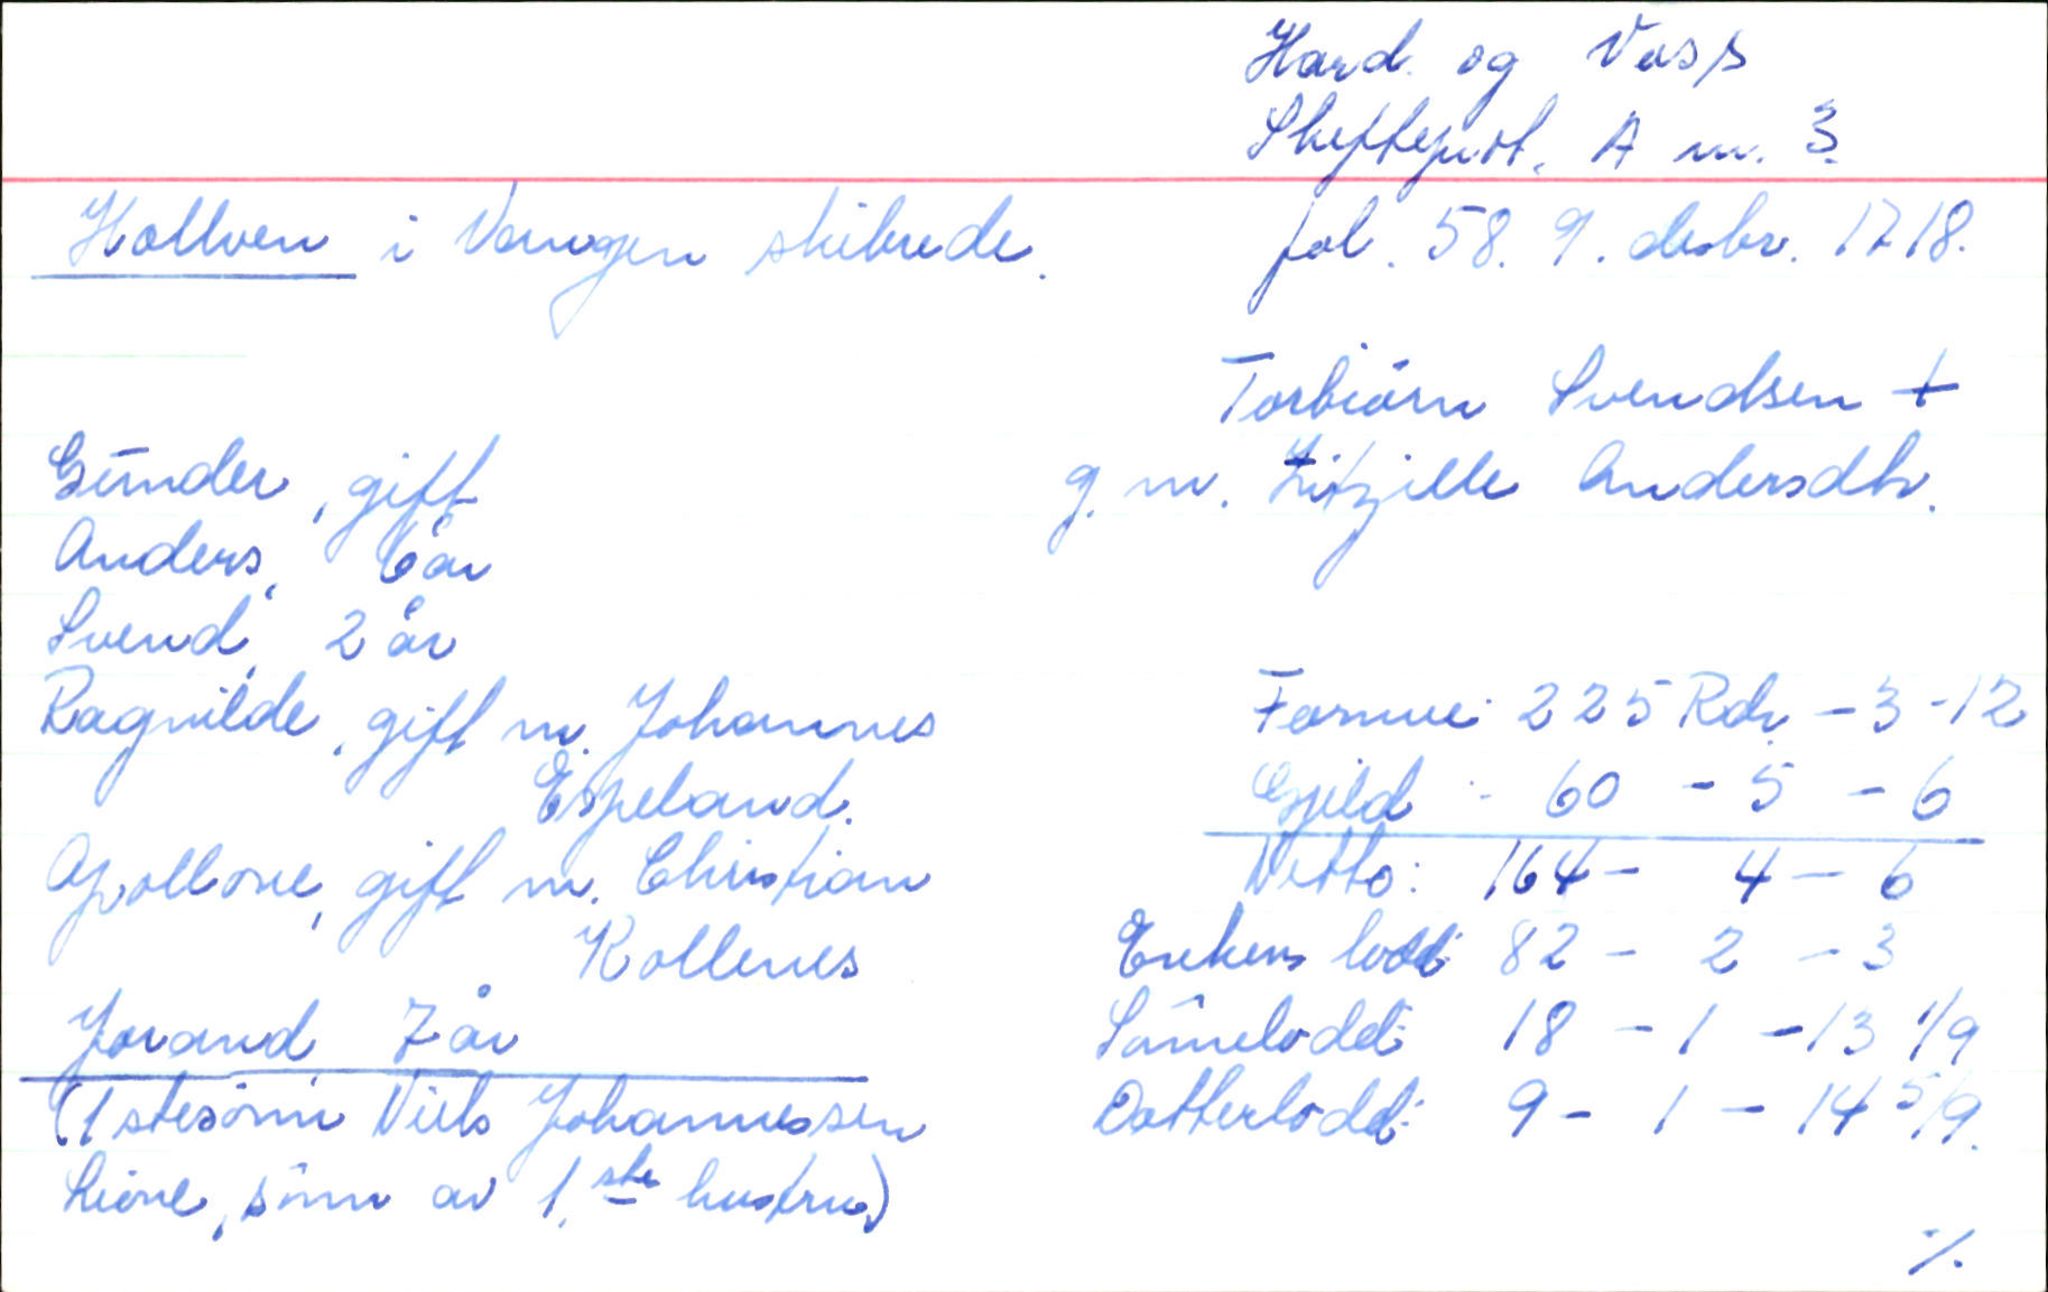 Hard. og Voss
Skifteprot. A nr. 3.
Hallven i Vangen skibrede.
fol. 58. 9. desbr. 1718.
Torbiörn Svendsen †
g. m. Zitzille Andersdtr.
Gunder, gift
Anders, 6 år
Svend, 2 år
Ragnilde, gift m. Johannes
Espeland.
Apollone, gift m. Christian
Kollenes
Jorand, 7 år
(1 stesönn Niels Johannessen
Lione, sönn av 1.ste hustru)
Formue: 225 Rdr. - 3 - 12
Gjeld : - 60 - 5 - 6
Netto: 164 - 4 - 6
Enkens lodd: 82 - 2 - 3
Sönnelodd: 18 - 1 - 13 1/9
Dotterlodd: 9 - 1 - 14 5/9.
./.